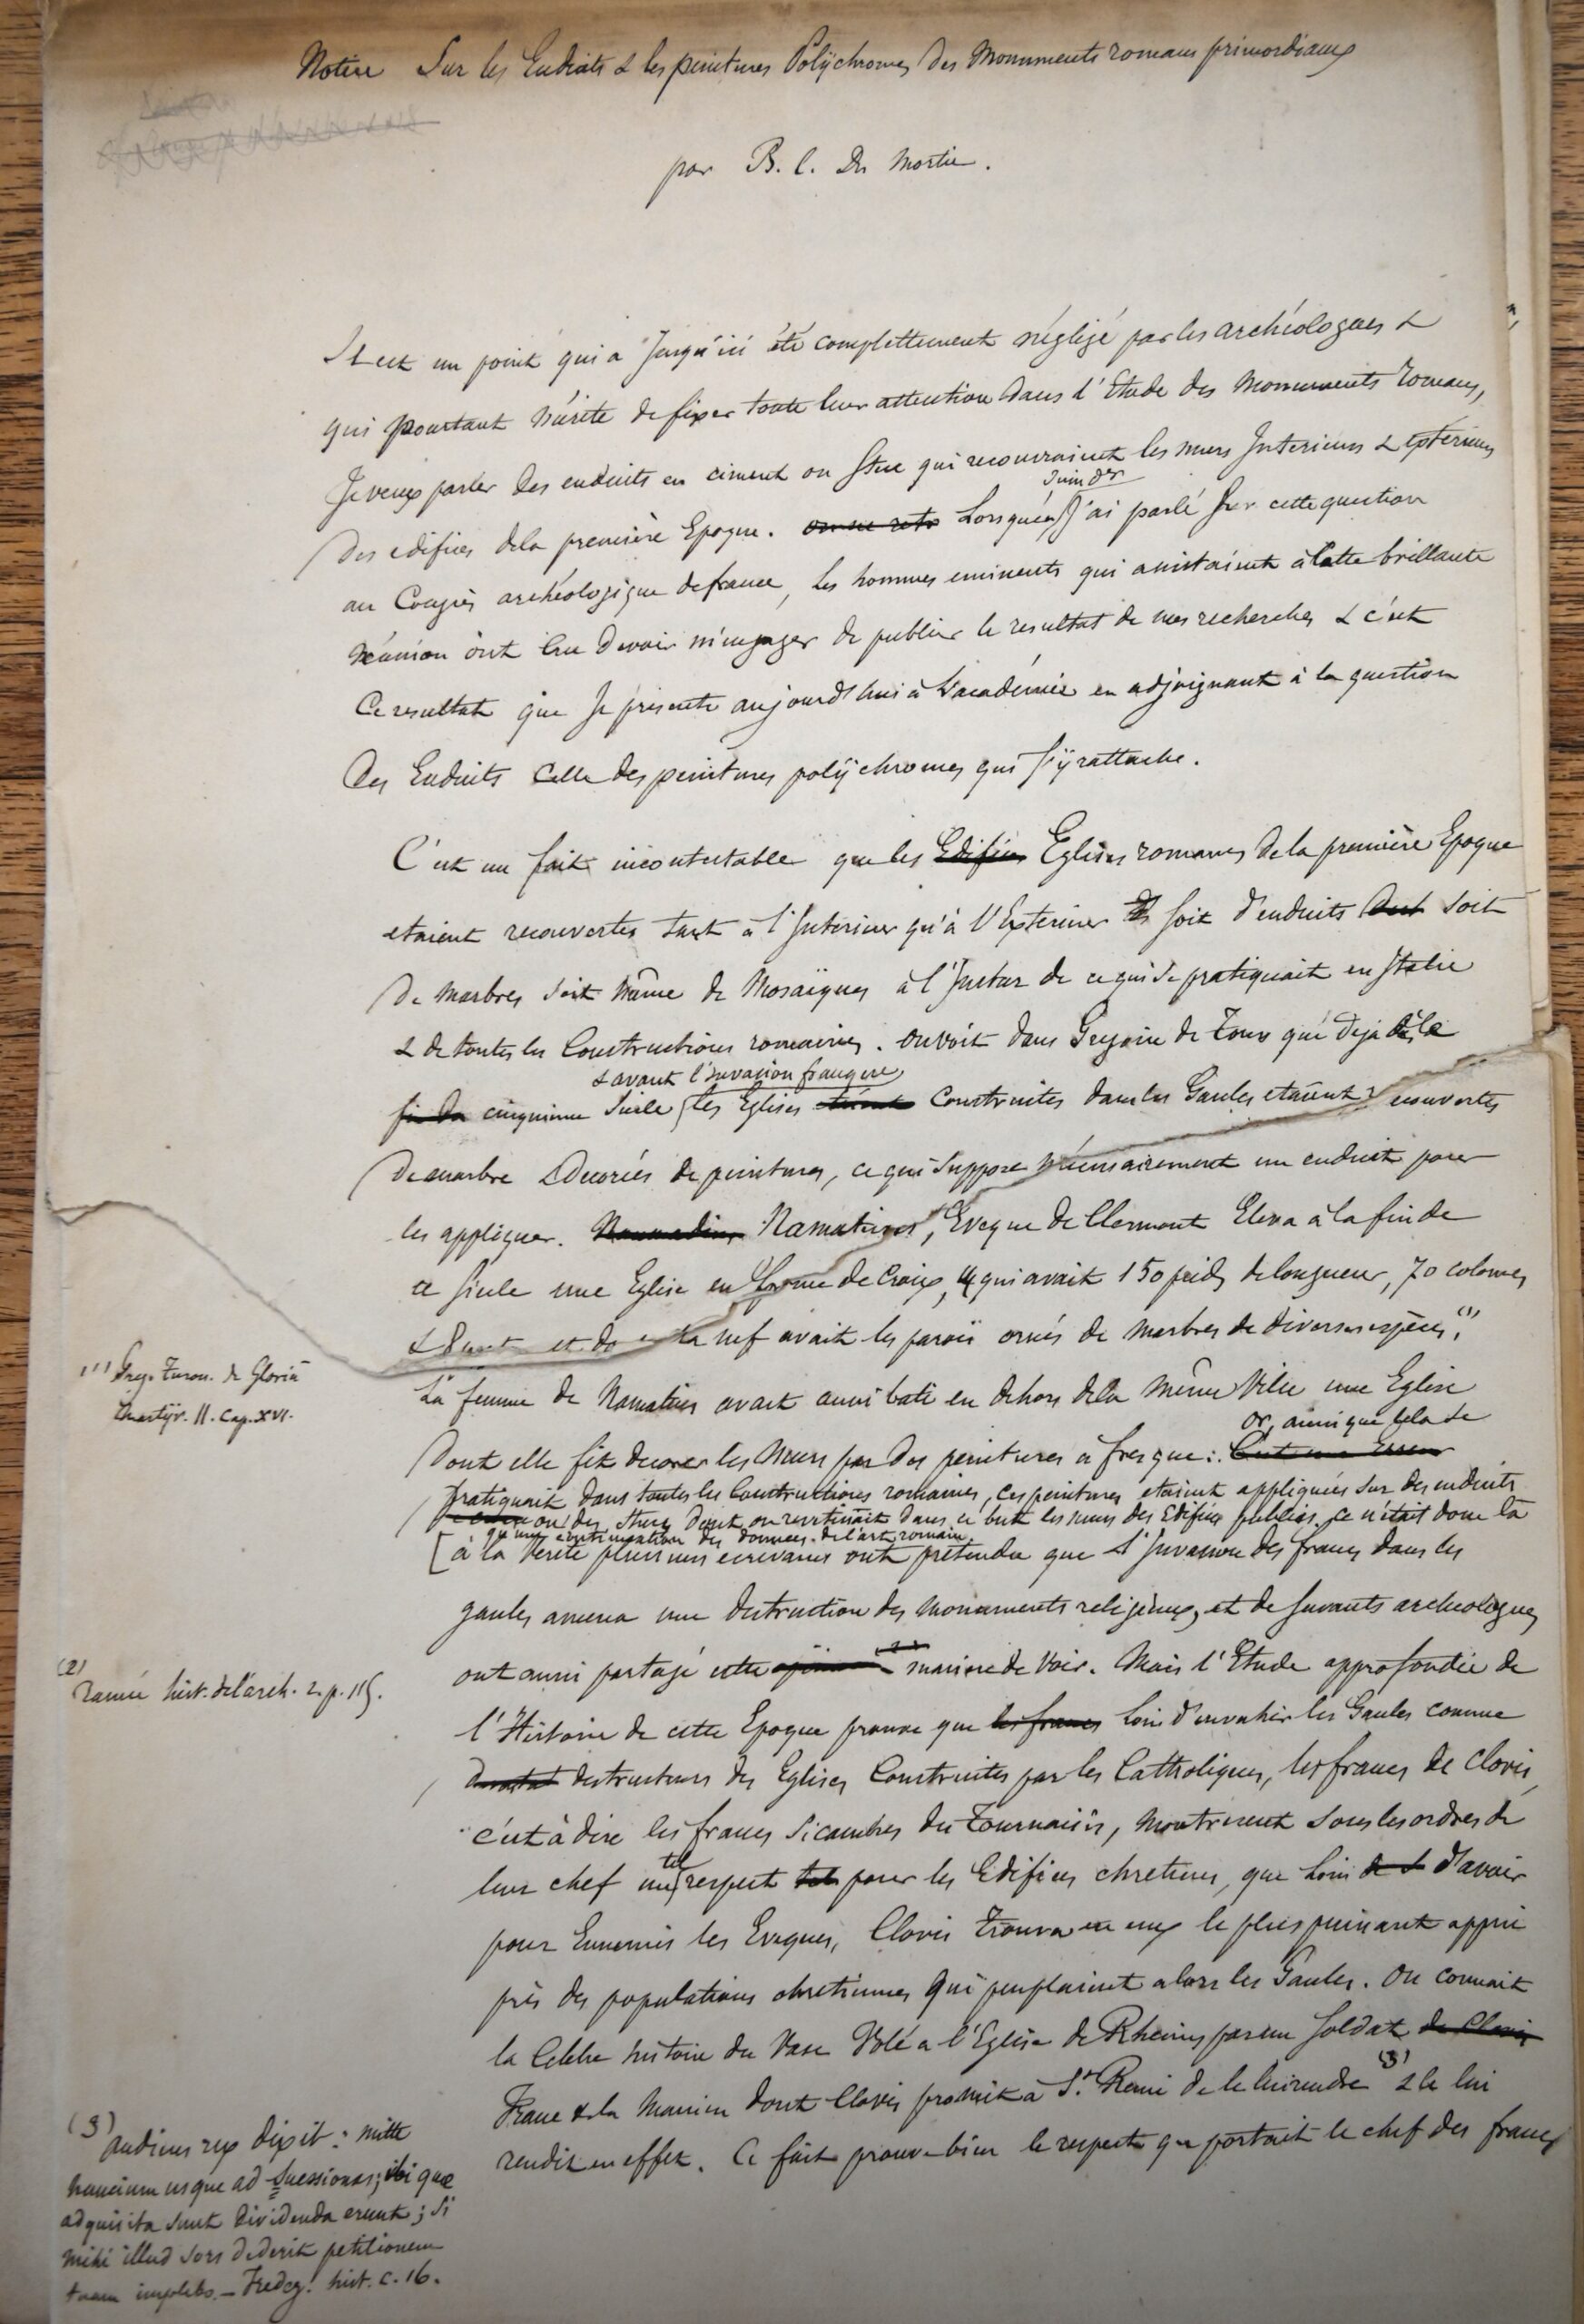 Notice Sur les Enduits & les peintures Polÿchromes des Monuments romans primordiaux
par B. C. Du Mortier.
Il est un point qui a Jusqu'ici été complettement négligé par les archéologues &
qui pourtant mérite de fixer toute leur attention dans l'Etude des Monuments romans,
Je veux parler des enduits en ciment ou Stuc qui recouvraient les murs Interieurs & exterieurs
des edifices de la première Epoque. Lorsque j'ai parlé sur cette question
au Congrès archéologique de france, les hommes eminents qui assistaient à cette brillante
réunion ont cru devoir m'engager de publier le resultat de mes recherches & c'est
Ce resultat que Je présente aujourd'hui à l'académie en adjoignant à la question
des Enduits celle des peintures polÿchromes qui s'ÿ rattache.
C'est un fait incontestable que les Edifices Eglises romanes de la première Epoque
etaient recouvertes tant à l'Interieur qu'à l'Exterieur soit d'enduits soit
de marbres soit même de Mosaïques à l'Instar de ce qui se pratiquait en Italie
& de toutes les Constructions romaines. On voit dans Gregoire de Tours que deja dès le
& avant l'Invasion franque
fin du cinquieme Siecle les Eglises construites dans les Gaules etaient recouvertes
de marbre & decorées de peintures, ce qui suppose nécessairement un enduit pour
les appliquer. Namatius, Eveque de Clermont Eleva à la fin de
ce siecle une Eglise en forme de Croix, qui avait 150 pieds de longueur, 70 colonnes
& dont la nef avait les parois ornés de marbres de diverses espèces (1).
(1) Greg. Turon. de Gloriâ
Martÿr. II. Cap. XVI.
La femme de Namatius avait aussi bati en dehors de la même Ville une Eglise
or, ainsi que cela se
dont elle fit decorer les Murs par des peintures à fresque : C'est une Erreur
pratiquait dans toutes les Constructions romaines, ces peintures etaient appliquées sur des enduits
ou des Stucs dont on revetissait dans ce but les murs des Edifices publics. Ce n'était donc là
qu'une continuation des données de l'art romain.
[à la Verité plusieurs ecrivains ont prétendu que l'Invasion des francs dans les
gaules amena une destruction des Monuments religieux, et de savants archeologues
ont aussi partagé cette opinion maniere de Voir. Mais l'Etude approfondie de
(2)
Ramée hist. de l'arch. 2. p. 115.
l'Histoire de cette Epoque prouve que les francs loin d'envahir les Gaules comme
destructeurs des Eglises Construites par les Catholiques, les francs de Clovis,
c'est à dire les francs Sicambres du Tournaisis, montrerent sous les ordres de
leur chef un tel respect tel pour les Edifices chretiens, que loin d'avoir
pour Ennemis les Eveques, Clovis trouva en eux le plus puissant appui
près des populations chretiennes qui peuplaient alors les Gaules. On connait
la Celebre histoire du Vase Volé a l'Eglise de Rheims par un Soldat de Clovis
Franc & la Maniere dont Clovis promit à St. Remi de le lui rendre (3) & le lui
rendit en effet. Ce fait prouve bien le respect que portait le chef des francs
(3) audiens rex dixit : mitte
nuncium usque ad Suessionas; ibi quæ
adquisita sunt dividenda erunt; si
mihi illud sors dederit petitionem
tuam implebo. — Fredeg. hist. c. 16.